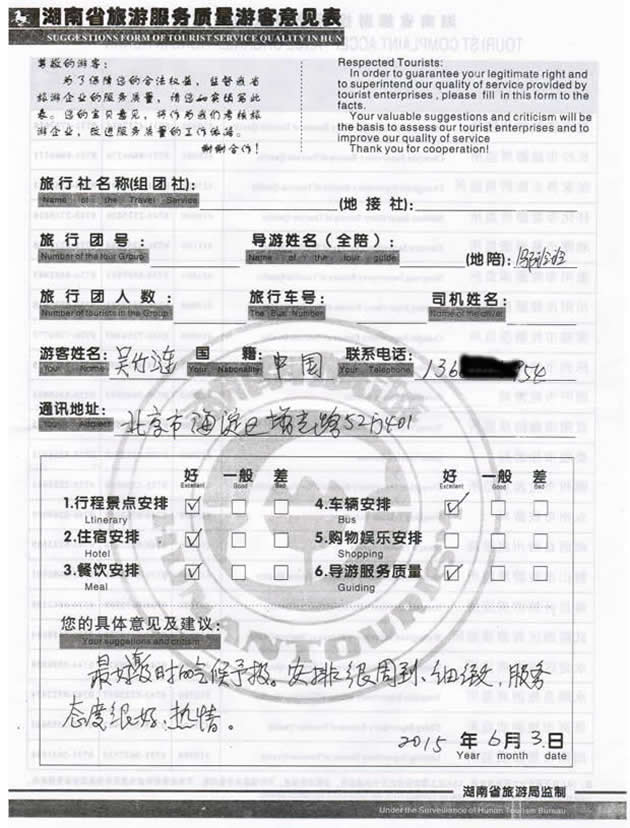 湖南省旅游服务质量游客意见表
SUGGESTIONS FORM OF TOURIST SERVICE QUALITY IN HUN
尊敬的游客：
为了保障您的合法权益，监督我省
旅游企业的服务质量，请您如实填写此
表。您的宝贵意见，将作为我们考核旅
游企业，改进服务质量的工作依据。
谢谢合作！
Respected Tourists:
In order to guarantee your legitimate right and
to superintend our quality of service provided by
tourist enterprises , please fill in this form to the
facts.
Your valuable suggestions and criticism will be
the basis to assess our tourist enterprises and to
improve our quality of service
Thank you for cooperation!
旅行社名称(组团社): (地接社):
Name of the Travel Service
旅行团号: 导游姓名(全陪): (地陪):
Number of the tour Group Name of the tour guide
旅行团人数: 旅行车号: 司机姓名:
Number of tourists in the Group The Bus Number Name of the driver
游客姓名: 吴竹涟 国籍: 中国 联系电话: 136 54
Your Name Your Nationality Your Telephone
通讯地址: 北京市海淀区 路52 401
Your Address
好 一般 差 好 一般 差
Excellent Good Bad Excellent Good Bad
1.行程景点安排 4.车辆安排
Ltinerary Bus
2.住宿安排 5.购物娱乐安排
Hotel Shopping
3.餐饮安排 6.导游服务质量
Meal Guiding
HUNANTOURIST
您的具体意见及建议:
Your suggestions and critism
最好 时的气候予报。安排很周到、细致，服务
态度很好，热情。
2015 年 6 月 3 日
Year month date
湖南省旅游局监制
Under the Surveillance of Hunan Tourism Bureau